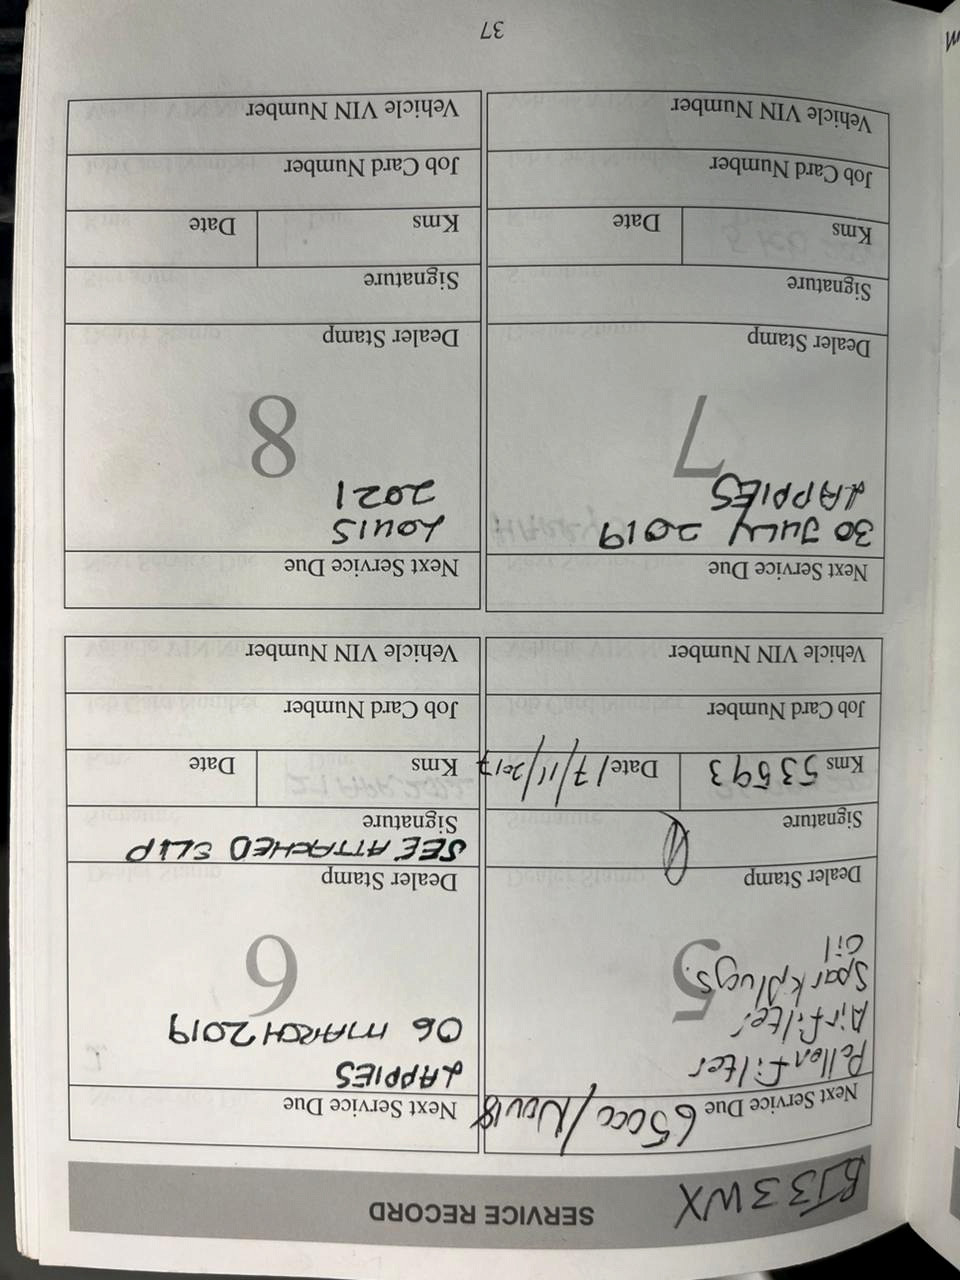 BJ33WX SERVICE RECORD
Next Service Due 65000/Nov18
Pollen filter
Air filter
Sparkplugs.
Oil
5
Dealer Stamp
Signature
Kms 53693 Date 17/11/2017
Job Card Number
Vehicle VIN Number
Next Service Due
LAPPIES
06 MARCH 2019
6
Dealer Stamp
SEE ATTACHED SLIP
Signature
Kms Date
Job Card Number
Vehicle VIN Number
Next Service Due
30 JULY 2019
LAPPIES
7
Dealer Stamp
Signature
Kms Date
Job Card Number
Vehicle VIN Number
Next Service Due
LOUIS
2021
8
Dealer Stamp
Signature
Kms Date
Job Card Number
Vehicle VIN Number
37